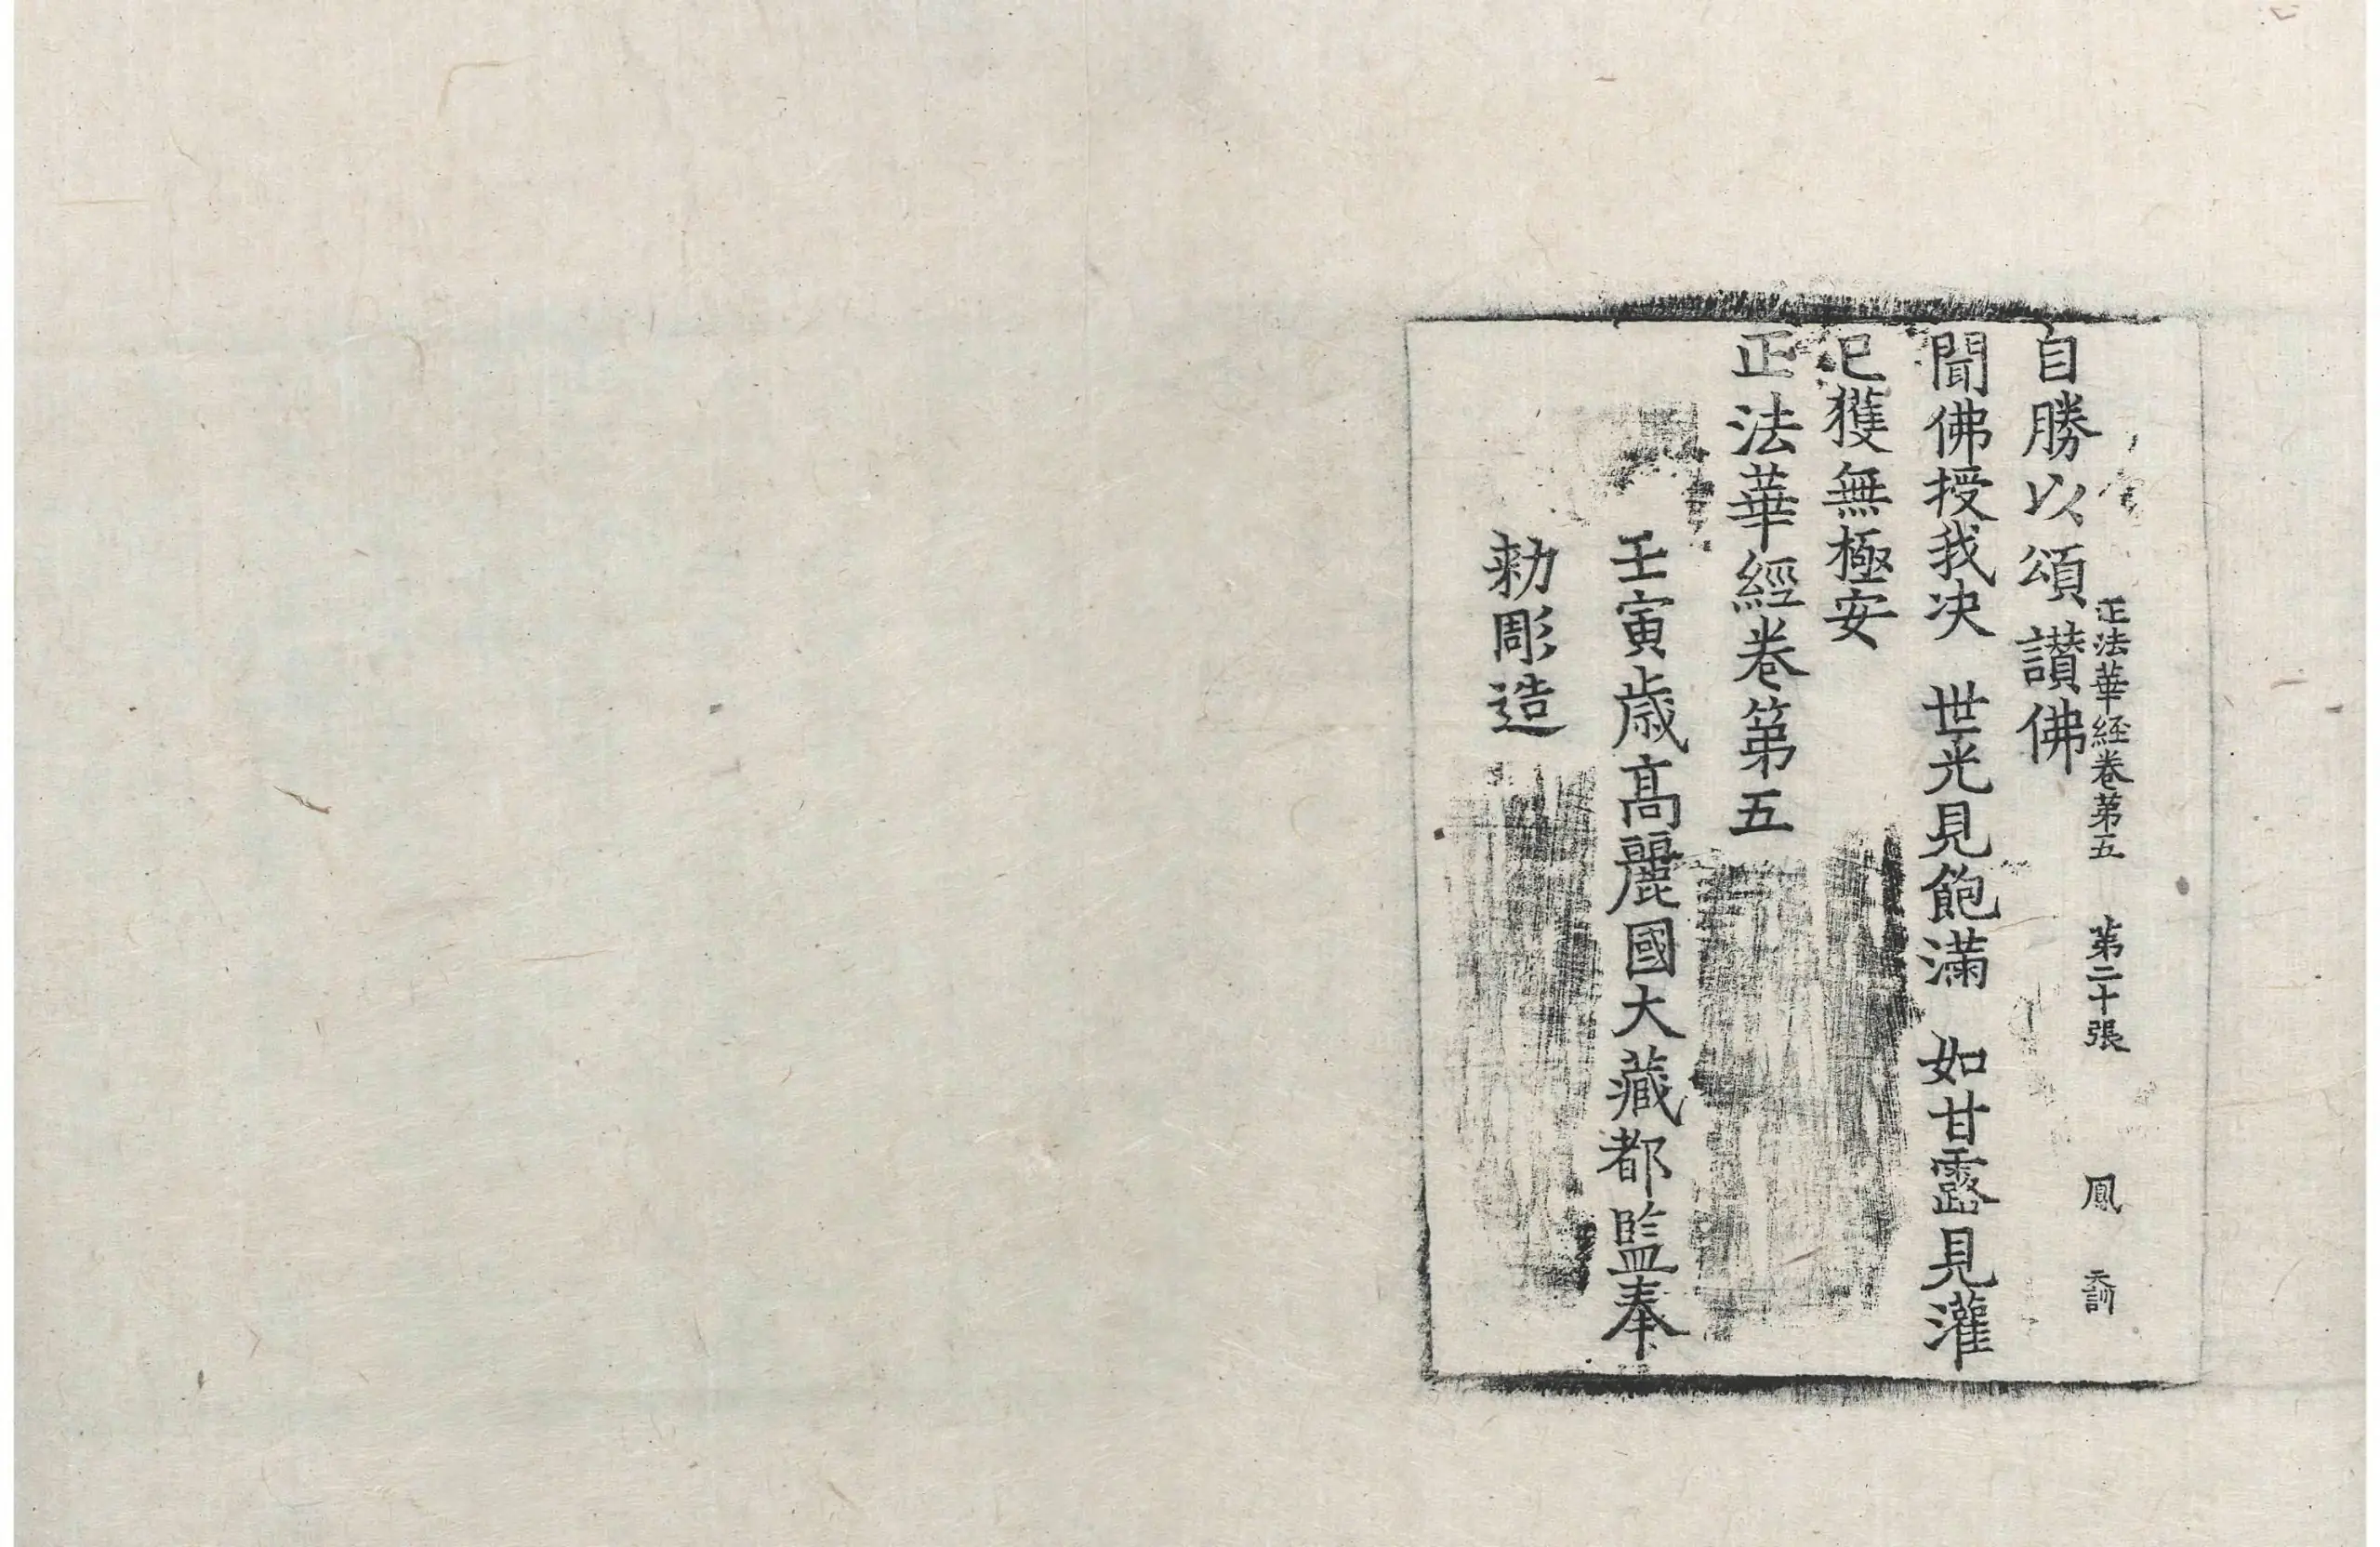 正法華経卷第五 第二十張 鳳
自勝以頌讃佛
聞佛授我决 世光見飽滿 如甘露見灌
已獲無極安
正法華經卷第五
壬寅歳高麗國大藏都監奉
勅彫造